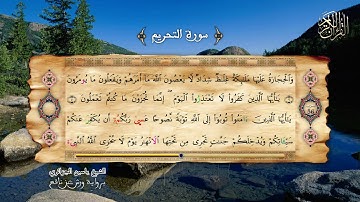 سورة التحريم
القرآن الكريم
وَالْحِجَارَةُ عَلَيْهَا مَلَٰٓئِكَةٌ غِلَاظٌ شِدَادٌ لَّا يَعْصُونَ اللَّهَ مَا أَمَرَهُمْ وَيَفْعَلُونَ مَا يُومَرُونَ
يَٰٓأَيُّهَا الَّذِينَ كَفَرُوا لَا تَعْتَذِرُوا الْيَوْمَ إِنَّمَا تُجْزَوْنَ مَا كُنتُمْ تَعْمَلُونَ
يَٰٓأَيُّهَا الَّذِينَ ءَامَنُوا تُوبُوا إِلَى اللَّهِ تَوْبَةً نَّصُوحًا عَسَىٰ رَبُّكُمْ أَن يُكَفِّرَ عَنكُمْ
سَيِّئَاتِكُمْ وَيُدْخِلَكُمْ جَنَّٰتٍ تَجْرِي مِن تَحْتِهَا الْأَنْهَٰرُ يَوْمَ لَا يُخْزِي اللَّهُ النَّبِيءَ
الشيخ ياسين الجزائري
برواية ورش عن نافع